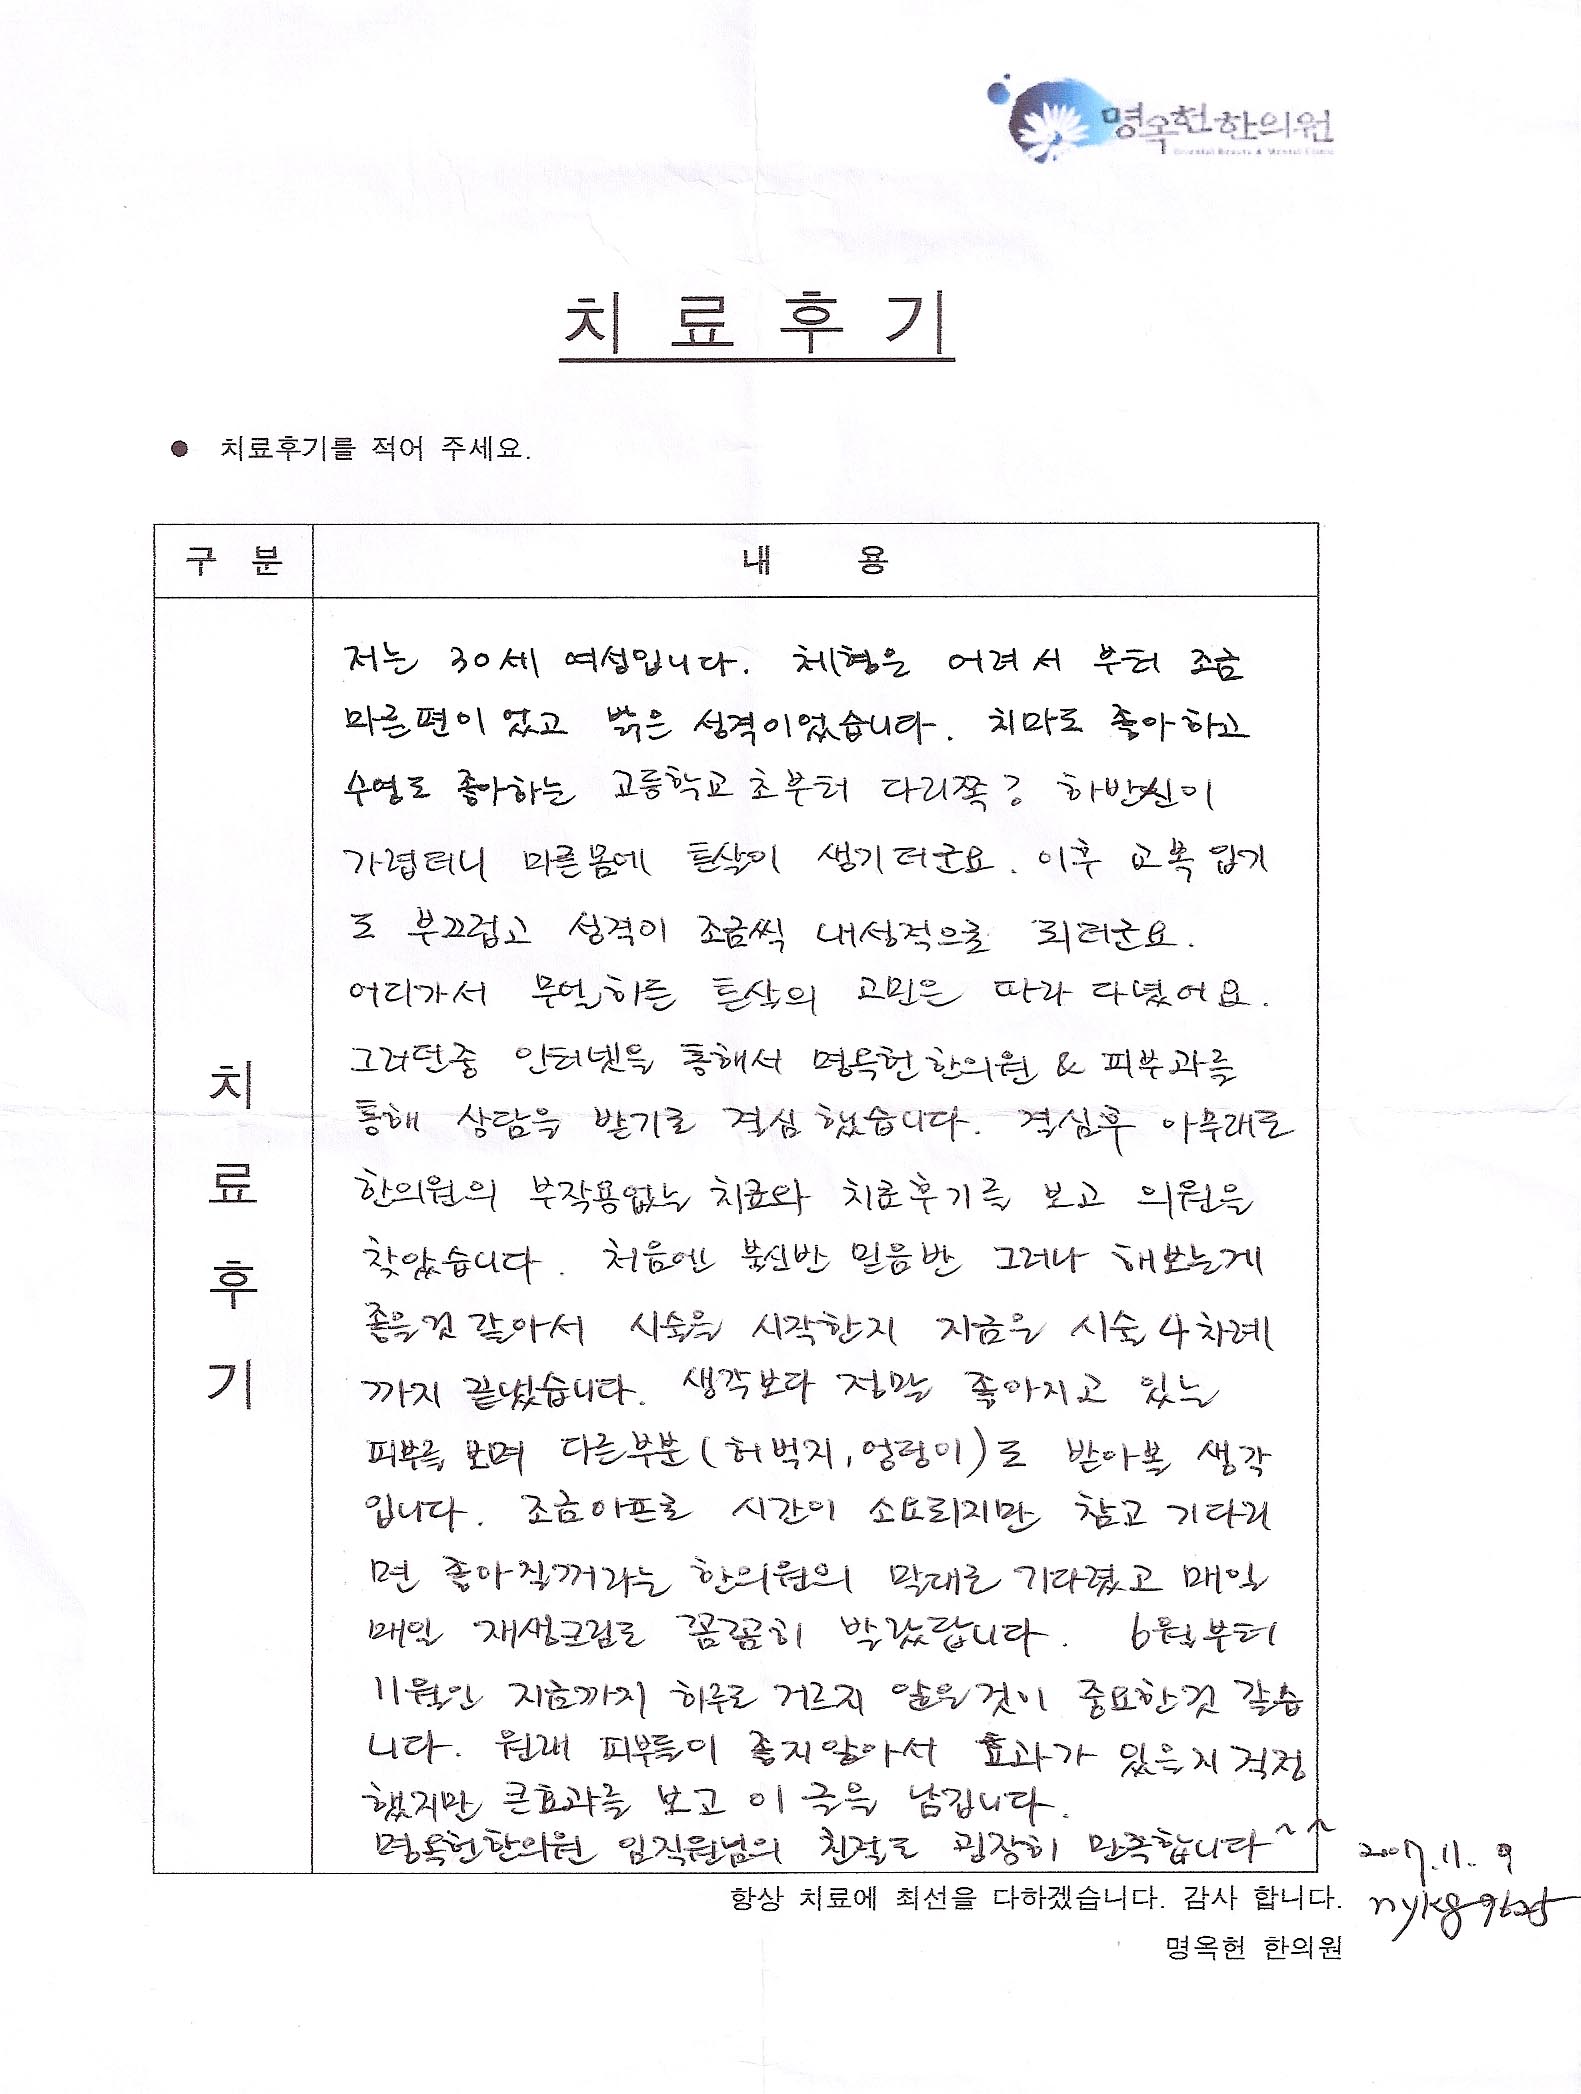 명옥헌한의원
Oriental Beauty & Mental Clinic
치 료 후 기
● 치료후기를 적어 주세요.
구 분 내 용
치 료 후 기
저는 30세 여성입니다. 체형은 어려서 부터 조금
마른편이었고 밝은 성격이었습니다. 치마도 좋아하고
수영도 좋아하는 고등학교 초부터 다리쪽 하반신이
가렵더니 마른몸에 튼살이 생기더군요. 이후 교복 입기
도 부끄럽고 성격이 조금씩 내성적으로 되더군요.
어디가서 무얼하든 튼살의 고민은 따라 다녔어요.
그러던중 인터넷을 통해서 명옥헌한의원 & 피부과를
통해 상담을 받기로 결심했습니다. 결심후 아무래도
한의원의 부작용없는 치료와 치료후기를 보고 의원을
찾았습니다. 처음엔 불신반 믿음반 그러나 해보는게
좋을것 같아서 시술을 시작한지 지금은 시술 4차례
까지 끝냈습니다. 생각보다 정말 좋아지고 있는
피부를 보며 다른부분(허벅지, 엉덩이)도 받아볼 생각
입니다. 조금아프로 시간이 소요되지만 참고 기다리
면 좋아질꺼라는 한의원의 말대로 기다렸고 매일
매일 재생크림도 꼼꼼히 발랐답니다. 6월부터
11월인 지금까지 하루도 거르지 않은것이 중요한것 같습
니다. 원래 피부들이 좋지않아서 효과가 있을지 걱정
했지만 큰효과를 보고 이 글을 남깁니다.
명옥헌한의원 임직원님의 친절도 굉장히 만족합니다~^
2007. 11. 9
항상 치료에 최선을 다하겠습니다. 감사 합니다.
nykg9625
명옥헌 한의원